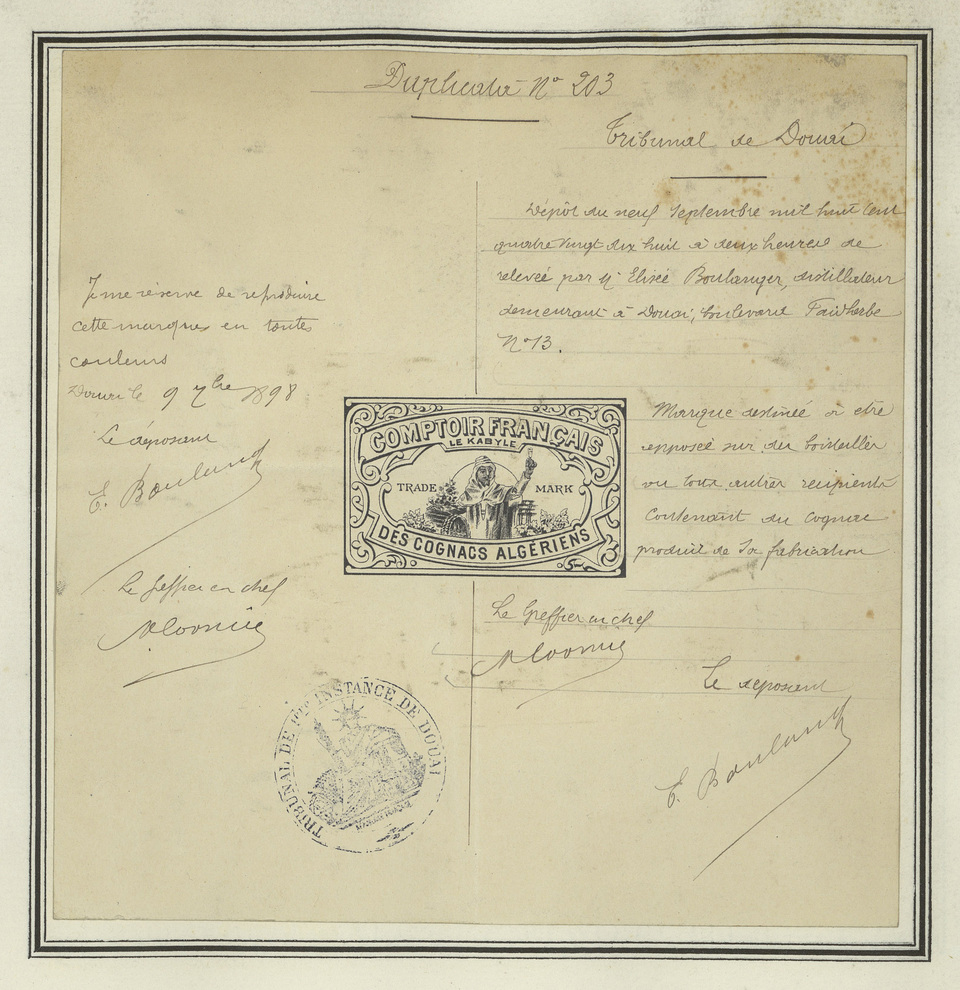 Duplicata N° 203
Tribunal de Douai
Dépôt du neuf Septembre mil huit cent
quatre vingt dix huit à deux heures de
relevée par Mr Elisée Boulanger, distillateur
demeurant à Douai, boulevard Faidherbe
N° 13.
Je me réserve de reproduire
cette marque en toutes
couleurs
Douai le 9 7bre 1898
Le déposant
E. Boulang
Le Greffier en chef
COMPTOIR FRANÇAIS
LE KABYLE
TRADE MARK
DES COGNACS ALGÉRIENS
Marque destinée à être
apposée sur des bouteilles
ou tous autres récipients
contenant du cognac
produit de sa fabrication
Le Greffier en chef
Le déposant
E. Boulang
TRIBUNAL DE 1ère INSTANCE DE DOUAI